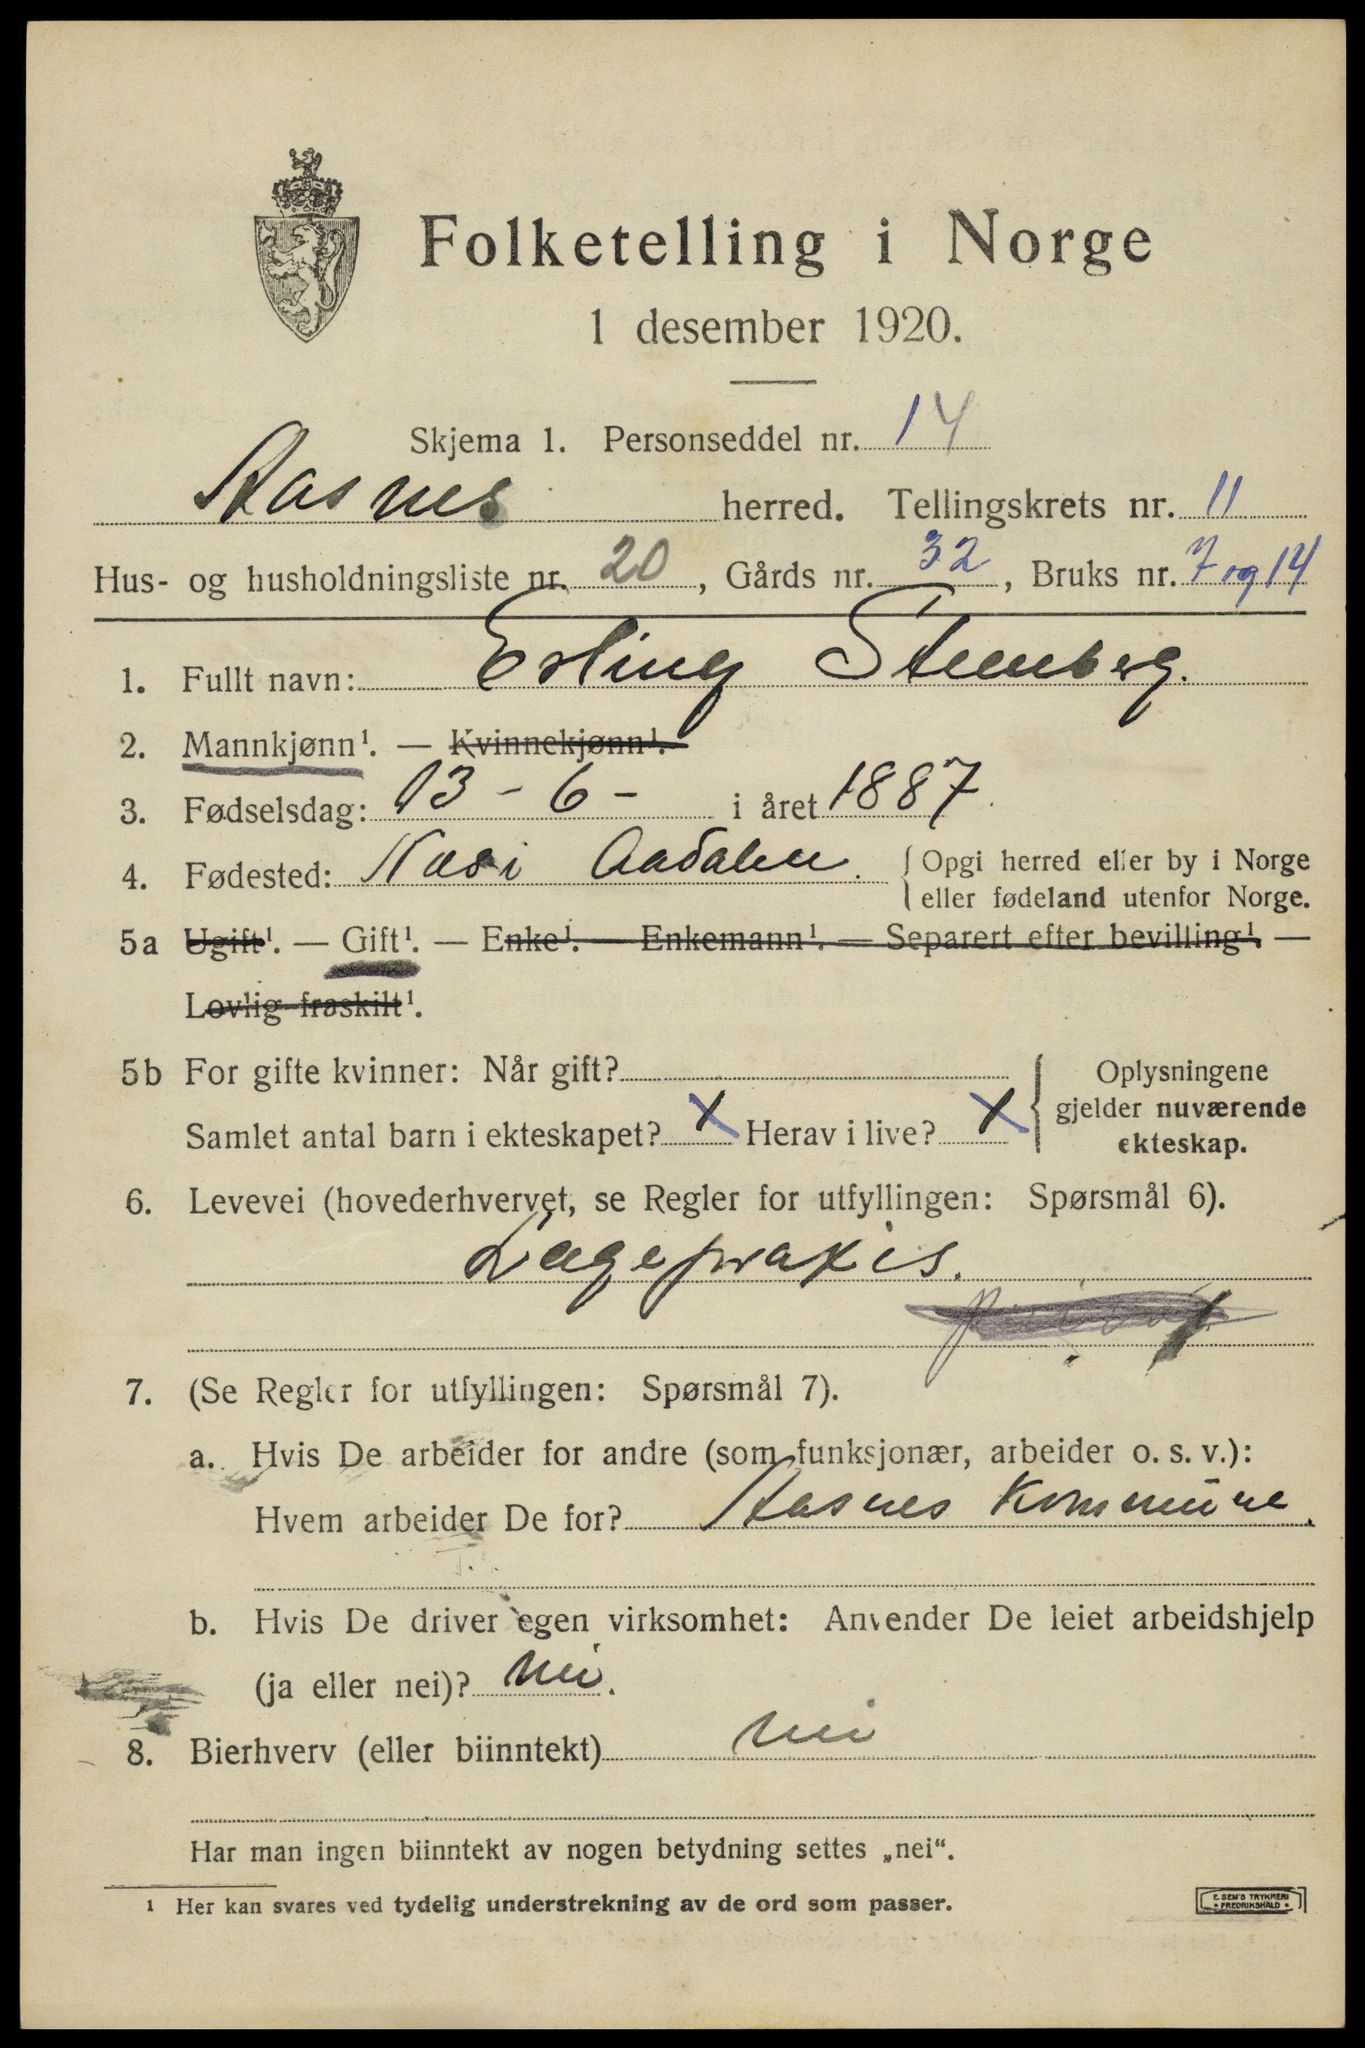 Folketelling i Norge
1 desember 1920.
Skjema 1. Personseddel nr. 14
Aasnes herred. Tellingskrets nr. 11
Hus- og husholdningsliste nr. 20, Gårds nr. 32, Bruks nr. 7 og 14
1. Fullt navn: Erling Steenberg.
2. Mannkjønn¹. — Kvinnekjønn¹.
3. Fødselsdag: 13 - 6 - i året 1887.
4. Fødested: Næs i Aadalen. { Opgi herred eller by i Norge
eller fødeland utenfor Norge.
5a Ugift¹. — Gift¹. — Enke¹. — Enkemann¹. — Separert efter bevilling¹. —
Lovlig fraskilt¹.
5b For gifte kvinner: Når gift? { Oplysningene
Samlet antal barn i ekteskapet? X Herav i live? X gjelder nuværende
ekteskap.
6. Levevei (hovederhvervet, se Regler for utfyllingen: Spørsmål 6).
Lægepraxis.
7. (Se Regler for utfyllingen: Spørsmål 7).
a. Hvis De arbeider for andre (som funksjonær, arbeider o. s. v.):
Hvem arbeider De for? Aasnes Kommune.
b. Hvis De driver egen virksomhet: Anvender De leiet arbeidshjelp
(ja eller nei)? nei.
8. Bierhverv (eller biinntekt) nei
Har man ingen biinntekt av nogen betydning settes „nei“.
¹ Her kan svares ved tydelig understrekning av de ord som passer.
E. SEM'S TRYKKERI
• FREDRIKSHALD •